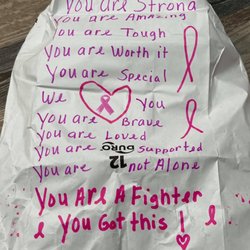 You are Strong
You are Amazing
You are Tough
You are Worth it
You are Special
We You
You are Brave
You are Loved
You are Supported
12
DURO
You are not Alone
You ARe A Fighter
You Got this!